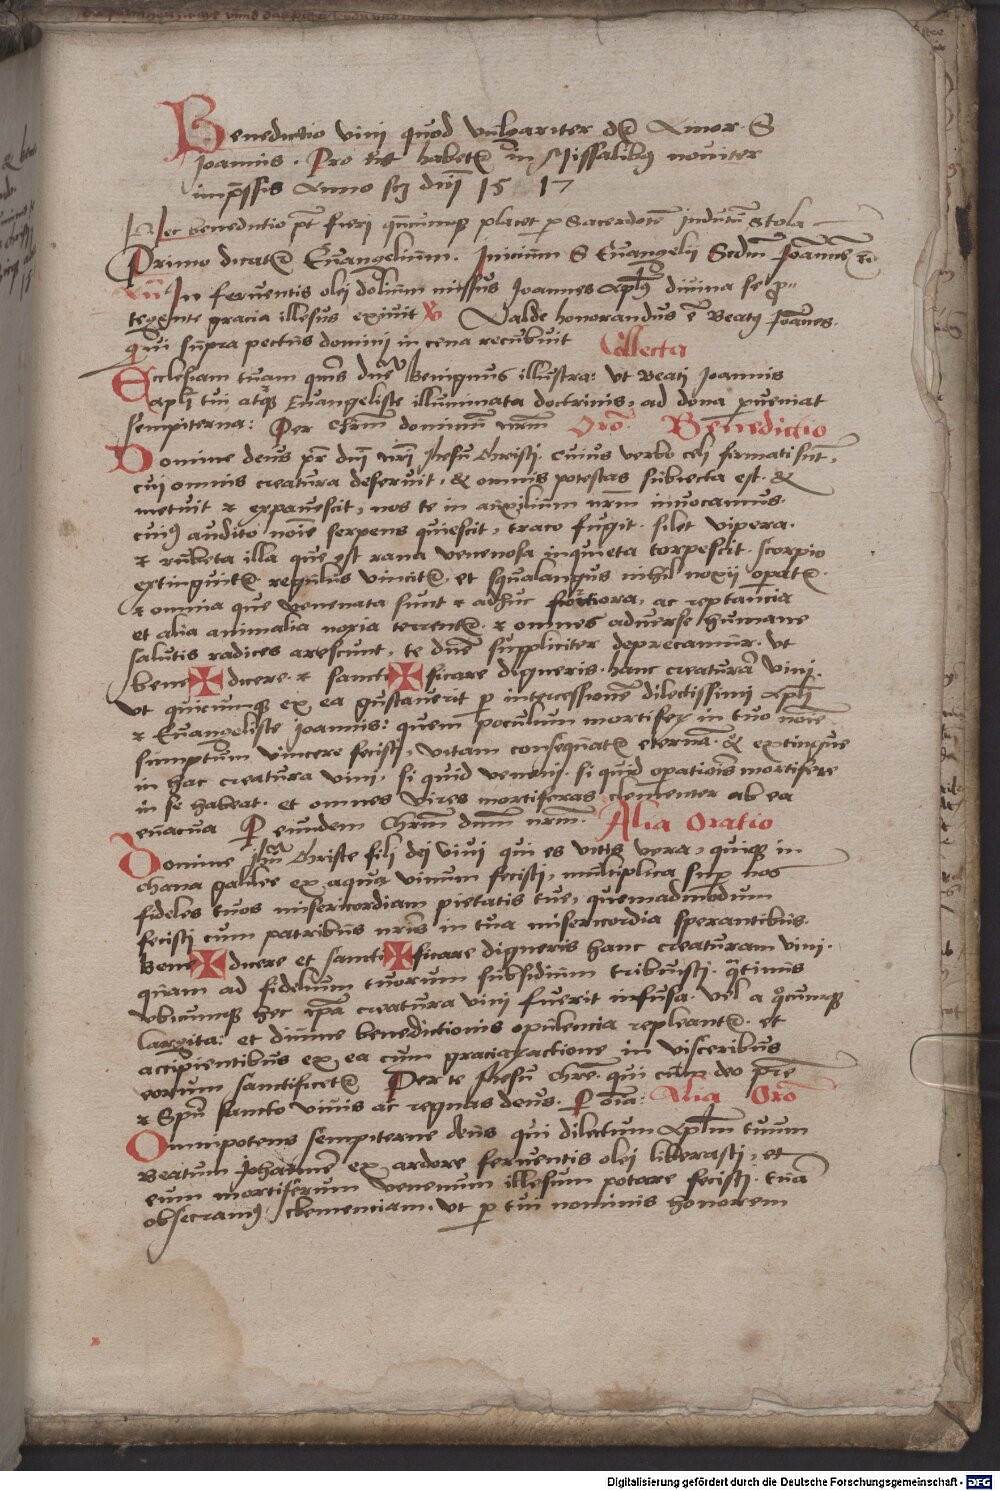 Benedictio vini quod vulgariter dr̄ Amor S
Joannis. Pro ut habetr̄ in Missalibꝰ noviter
imp̄ssis Anno sct̄ dn̄i 1517
Hec benedictio pt̄ fieri qn̄cumqꝫ placet ꝑ Sacerdotē indutū Stola
Primo dicatr̄ Evangelium. Inicium S Evangelii Scdm̄ Joannē
In ferventis olei dolium missus Joannes Apl̄us divina se ꝓ-
tegente gracia illesus exivit Valde honorandus ē Beatꝰ Joānes.
Qui supra pectus domini in cena recubuit Collecta
Ecclesiam tuam qms̄ dn̄e Benignus illustra: vt Beati Joannis
apl̄i tui atqꝫ Evangeliste illuminata doctrinis, ad dona ꝑueniat
sempiterna: Per Chrm̄ dominū nrm̄ Orō. Benedictio
Domine deus pr̄ dn̄i nr̄i Jhesu Christi. cuius verbo celi firmati sūt,
cui omnis creatura deservit, & omnis potestas subiecta est. &
metuit et expavescit, nos te in auxilium nrm̄ invocamus.
cuiꝰ audito noīe serpens quiescit, traco fugit. silet vipera.
et rubeta illa que est rana venenosa inquieta torpescit. scorpio
extinguitr̄. regulus vincitr̄. et spalangus nihil noxii opatr̄.
et omnia que venenata sunt et adhuc fortiora, ac reptancia
et alia animalia noxia terrentr̄. et omnes adverse humane
salutis radices arescunt, te dn̄e suppliciter deprecamur. vt
bene✠dicere. et sancti✠ficare digneris. hanc creaturā vini.
vt quicumqꝫ ex ea gustaverit ꝑ intercessionē dilectissimi Apl̄i
et Evangeliste Joannis: quem poculum mortifeꝝ in tuo noīe
sumptum vincere fecisti, vitam consequatr̄ eternā. & extingue
in hac creatura vini. si quid veneni. si quid opationis mortifere
in se habeat. et omnes vires mortiferas clementer ab ea
evacua P eundem Chrm̄ dnm̄ nrm̄. Alia Oratio
Domine Jhū Christe fili dei vivi qui es vitis vera, quiqꝫ in
chana galilee ex aqua vinum fecisti, multiplica sup nos
fideles tuos misericordiam pietatis tue, quemadmodum
fecisti cum patribus nris̄ in tua misericordia sperantibus.
Bene✠dicere et sancti✠ficare digneris hanc creaturam vini.
quam ad fidelium tuorum subsidium tribuisti. qatinus
vbicumqꝫ hec ip̄a creatura vini fuerit infusa. vel a qocumqꝫ
largita: et divine benedictionis opulencia repleantr̄. et
accipientibus ex ea cum graciaꝝ actione in visceribus
eorum sanctificetr̄ Per te Jhesu Chrē. qui cum deo pr̄e
et Spū sancto vivis ac regnas deus. P oīa: Alia Orō
Omnipotens sempiterne deus qui dilectum Apl̄m tuum
Beatum Johannē ex ardore ferventis olei liberasti, et
eum mortiferum venenum illesum potare fecisti. tuā
obsecramꝰ clemenciam. vt ꝑ tui nominis honorem
Digitalisierung gefördert durch die Deutsche Forschungsgemeinschaft - DFG